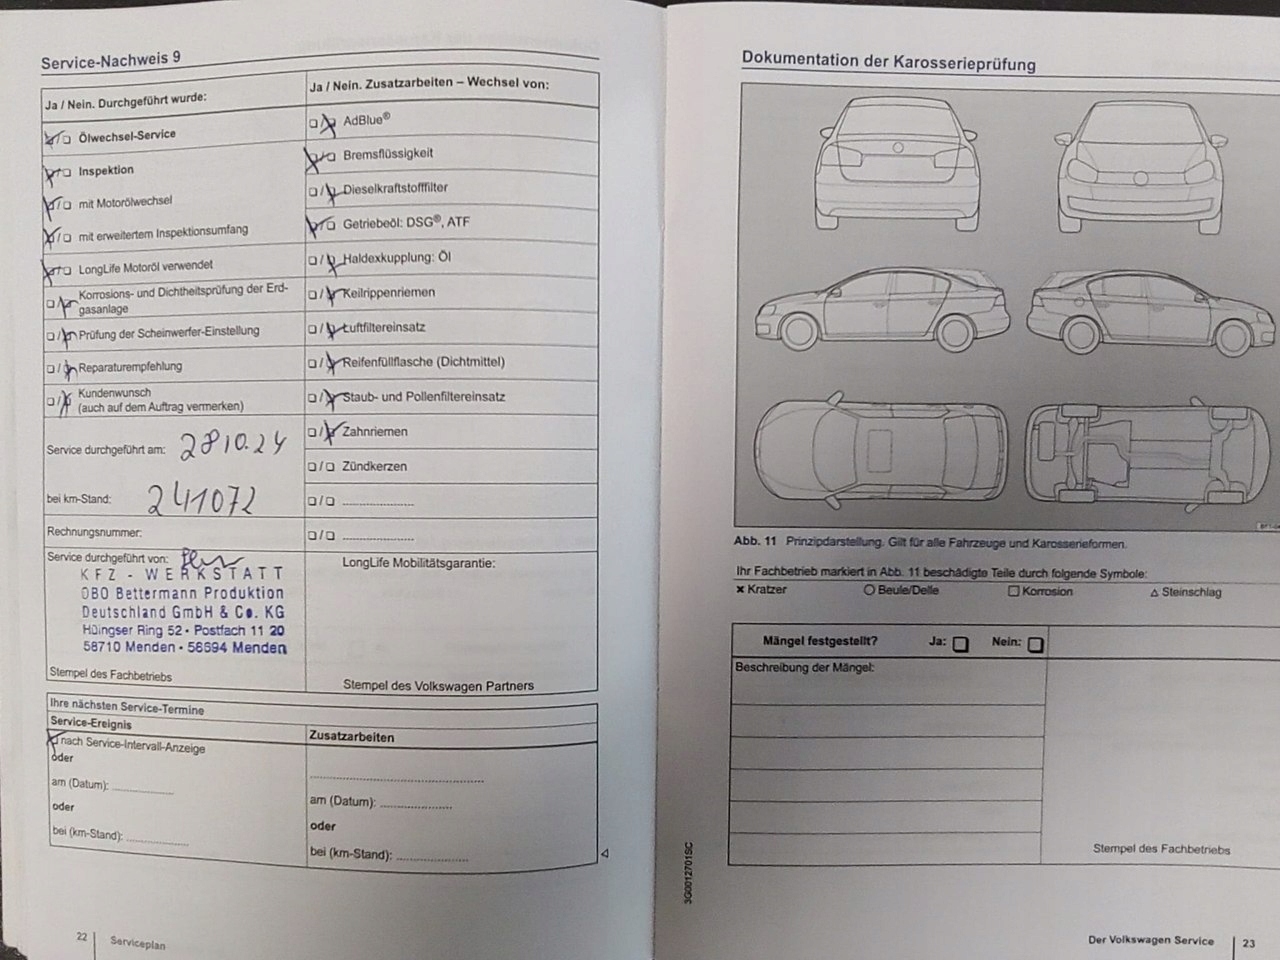 Service-Nachweis 9
Ja / Nein. Durchgeführt wurde:
Ölwechsel-Service
Inspektion
mit Motorölwechsel
mit erweitertem Inspektionsumfang
LongLife Motoröl verwendet
Korrosions- und Dichtheitsprüfung der Erd-
gasanlage
Prüfung der Scheinwerfer-Einstellung
Reparaturempfehlung
Kundenwunsch
(auch auf dem Auftrag vermerken)
Service durchgeführt am: 28 10.24
bei km-Stand: 241072
Rechnungsnummer:
Service durchgeführt von:
KFZ - WERKSTATT
OBO Bettermann Produktion
Deutschland GmbH & Co. KG
Hüingser Ring 52 • Postfach 11 20
58710 Menden • 58694 Menden
Stempel des Fachbetriebs
Ja / Nein. Zusatzarbeiten – Wechsel von:
AdBlue®
Bremsflüssigkeit
Dieselkraftstofffilter
Getriebeöl: DSG®, ATF
Haldexkupplung: Öl
Keilrippenriemen
Luftfiltereinsatz
Reifenfüllflasche (Dichtmittel)
Staub- und Pollenfiltereinsatz
Zahnriemen
Zündkerzen
LongLife Mobilitätsgarantie:
Stempel des Volkswagen Partners
Ihre nächsten Service-Termine
Service-Ereignis
nach Service-Intervall-Anzeige
oder
am (Datum):
oder
bei (km-Stand):
Zusatzarbeiten
am (Datum):
oder
bei (km-Stand):
22 Serviceplan
Dokumentation der Karosserieprüfung
Abb. 11 Prinzipdarstellung. Gilt für alle Fahrzeuge und Karosserieformen.
Ihr Fachbetrieb markiert in Abb. 11 beschädigte Teile durch folgende Symbole:
× Kratzer ○ Beule/Delle □ Korrosion △ Steinschlag
Mängel festgestellt? Ja: Nein:
Beschreibung der Mängel:
Stempel des Fachbetriebs
3G0012701SC
Der Volkswagen Service 23